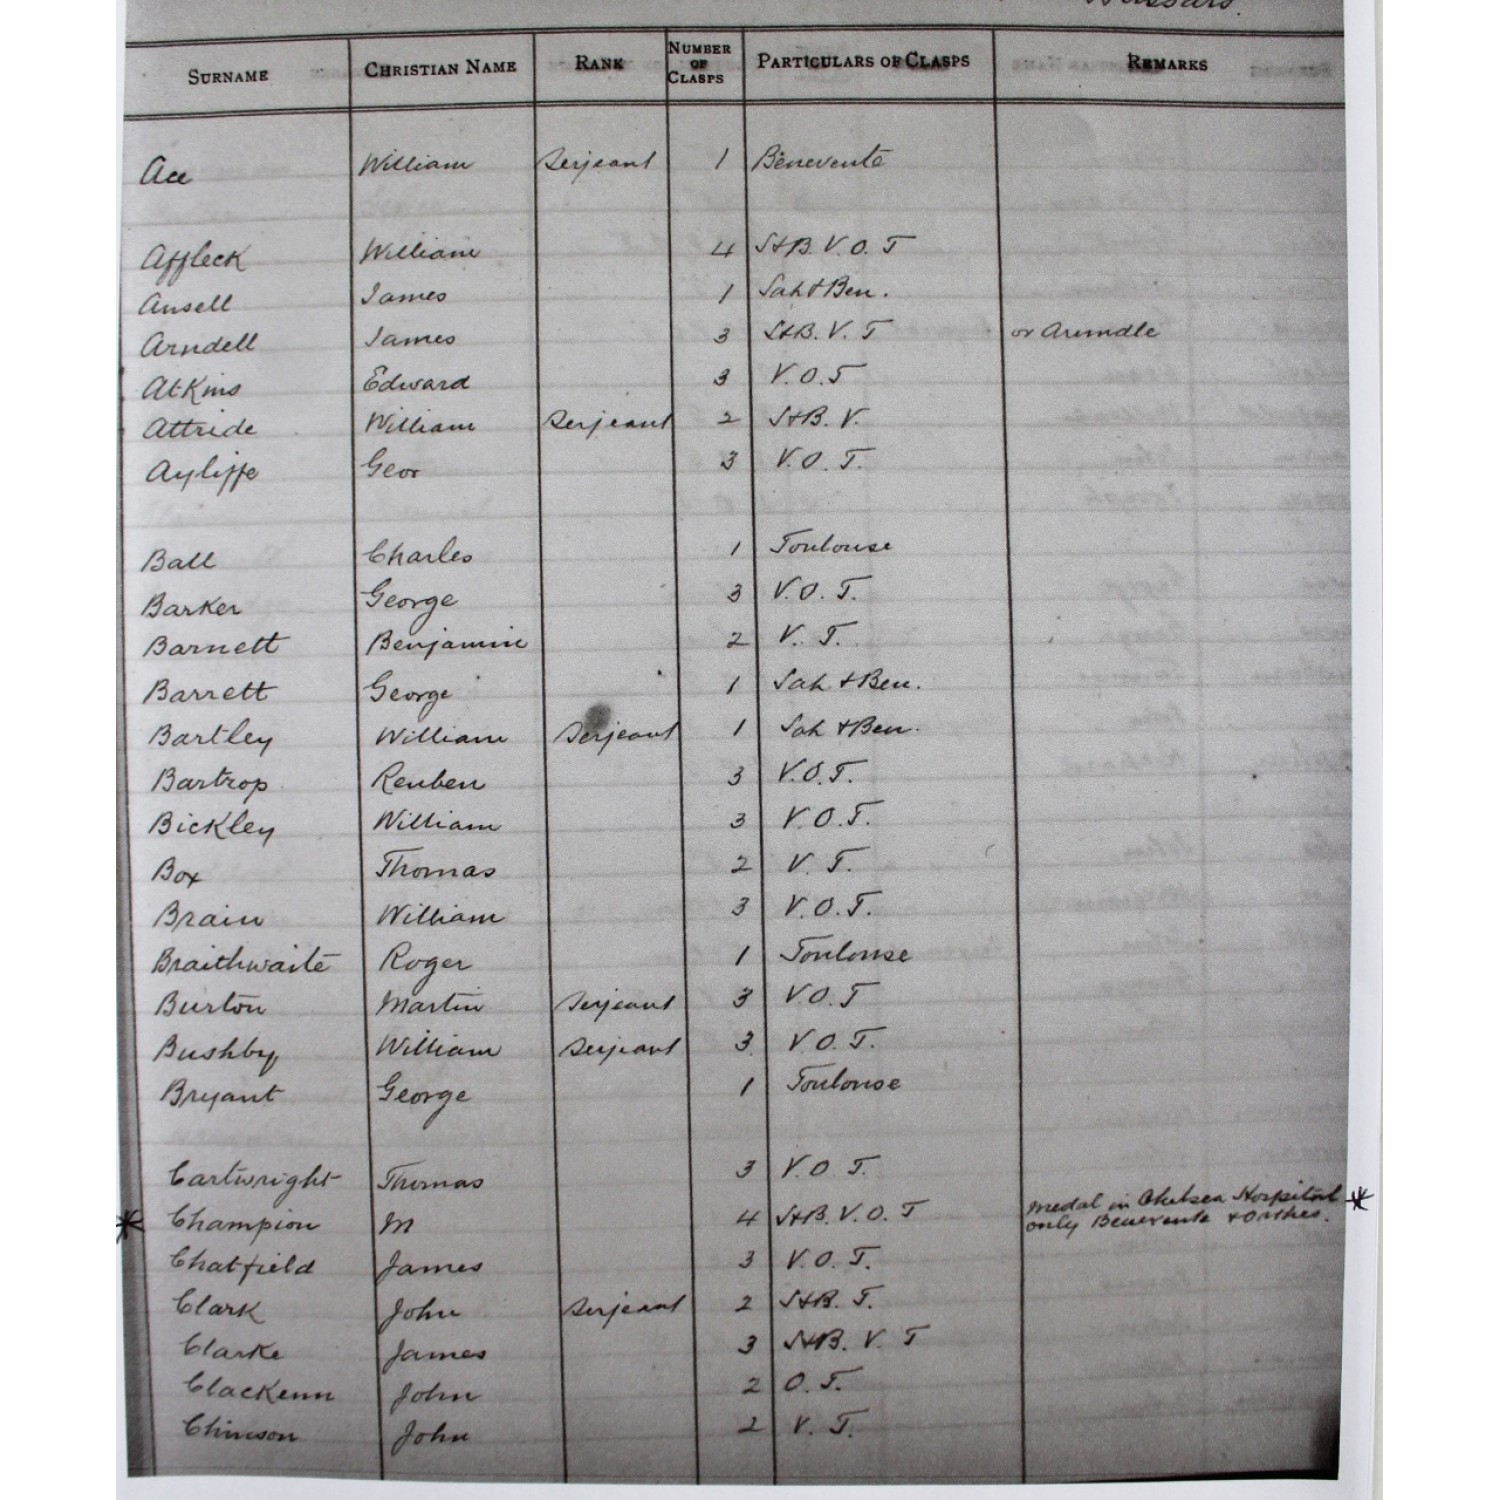 Hussars.
SURNAME CHRISTIAN NAME RANK NUMBER OF CLASPS PARTICULARS OF CLASPS REMARKS
Ace William Serjeant 1 Benevente
Affleck William 4 S+B. V. O. T
Ansell James 1 Sah + Ben.
Arndell James 3 S+B. V. T or Arundle
Atkins Edward 3 V. O. T
Attride William Serjeant 2 S+B. V.
Ayliffe Geor 3 V. O. T.
Ball Charles 1 Toulouse
Barker George 3 V. O. T.
Barnett Benjamin 2 V. T.
Barrett George 1 Sah + Ben.
Bartley William Serjeant 1 Sah + Ben.
Bartrop Reuben 3 V. O. T.
Bickley William 3 V. O. T.
Box Thomas 2 V. T.
Brain William 3 V. O. T.
Braithwaite Roger 1 Toulouse
Burton Martin Serjeant 3 V. O. T
Bushby William Serjeant 3 V. O. T.
Bryant George 1 Toulouse
Cartwright Thomas 3 V. O. T.
* Champion M 4 S+B. V. O. T Medal in Chelsea Hospital *
only Benevente + Orthes.
Chatfield James 3 V. O. T.
Clark John Serjeant 2 S+B. T.
Clarke James 3 S+B. V. T
Clackenn John 2 O. T.
Chinson John 2 V. T.